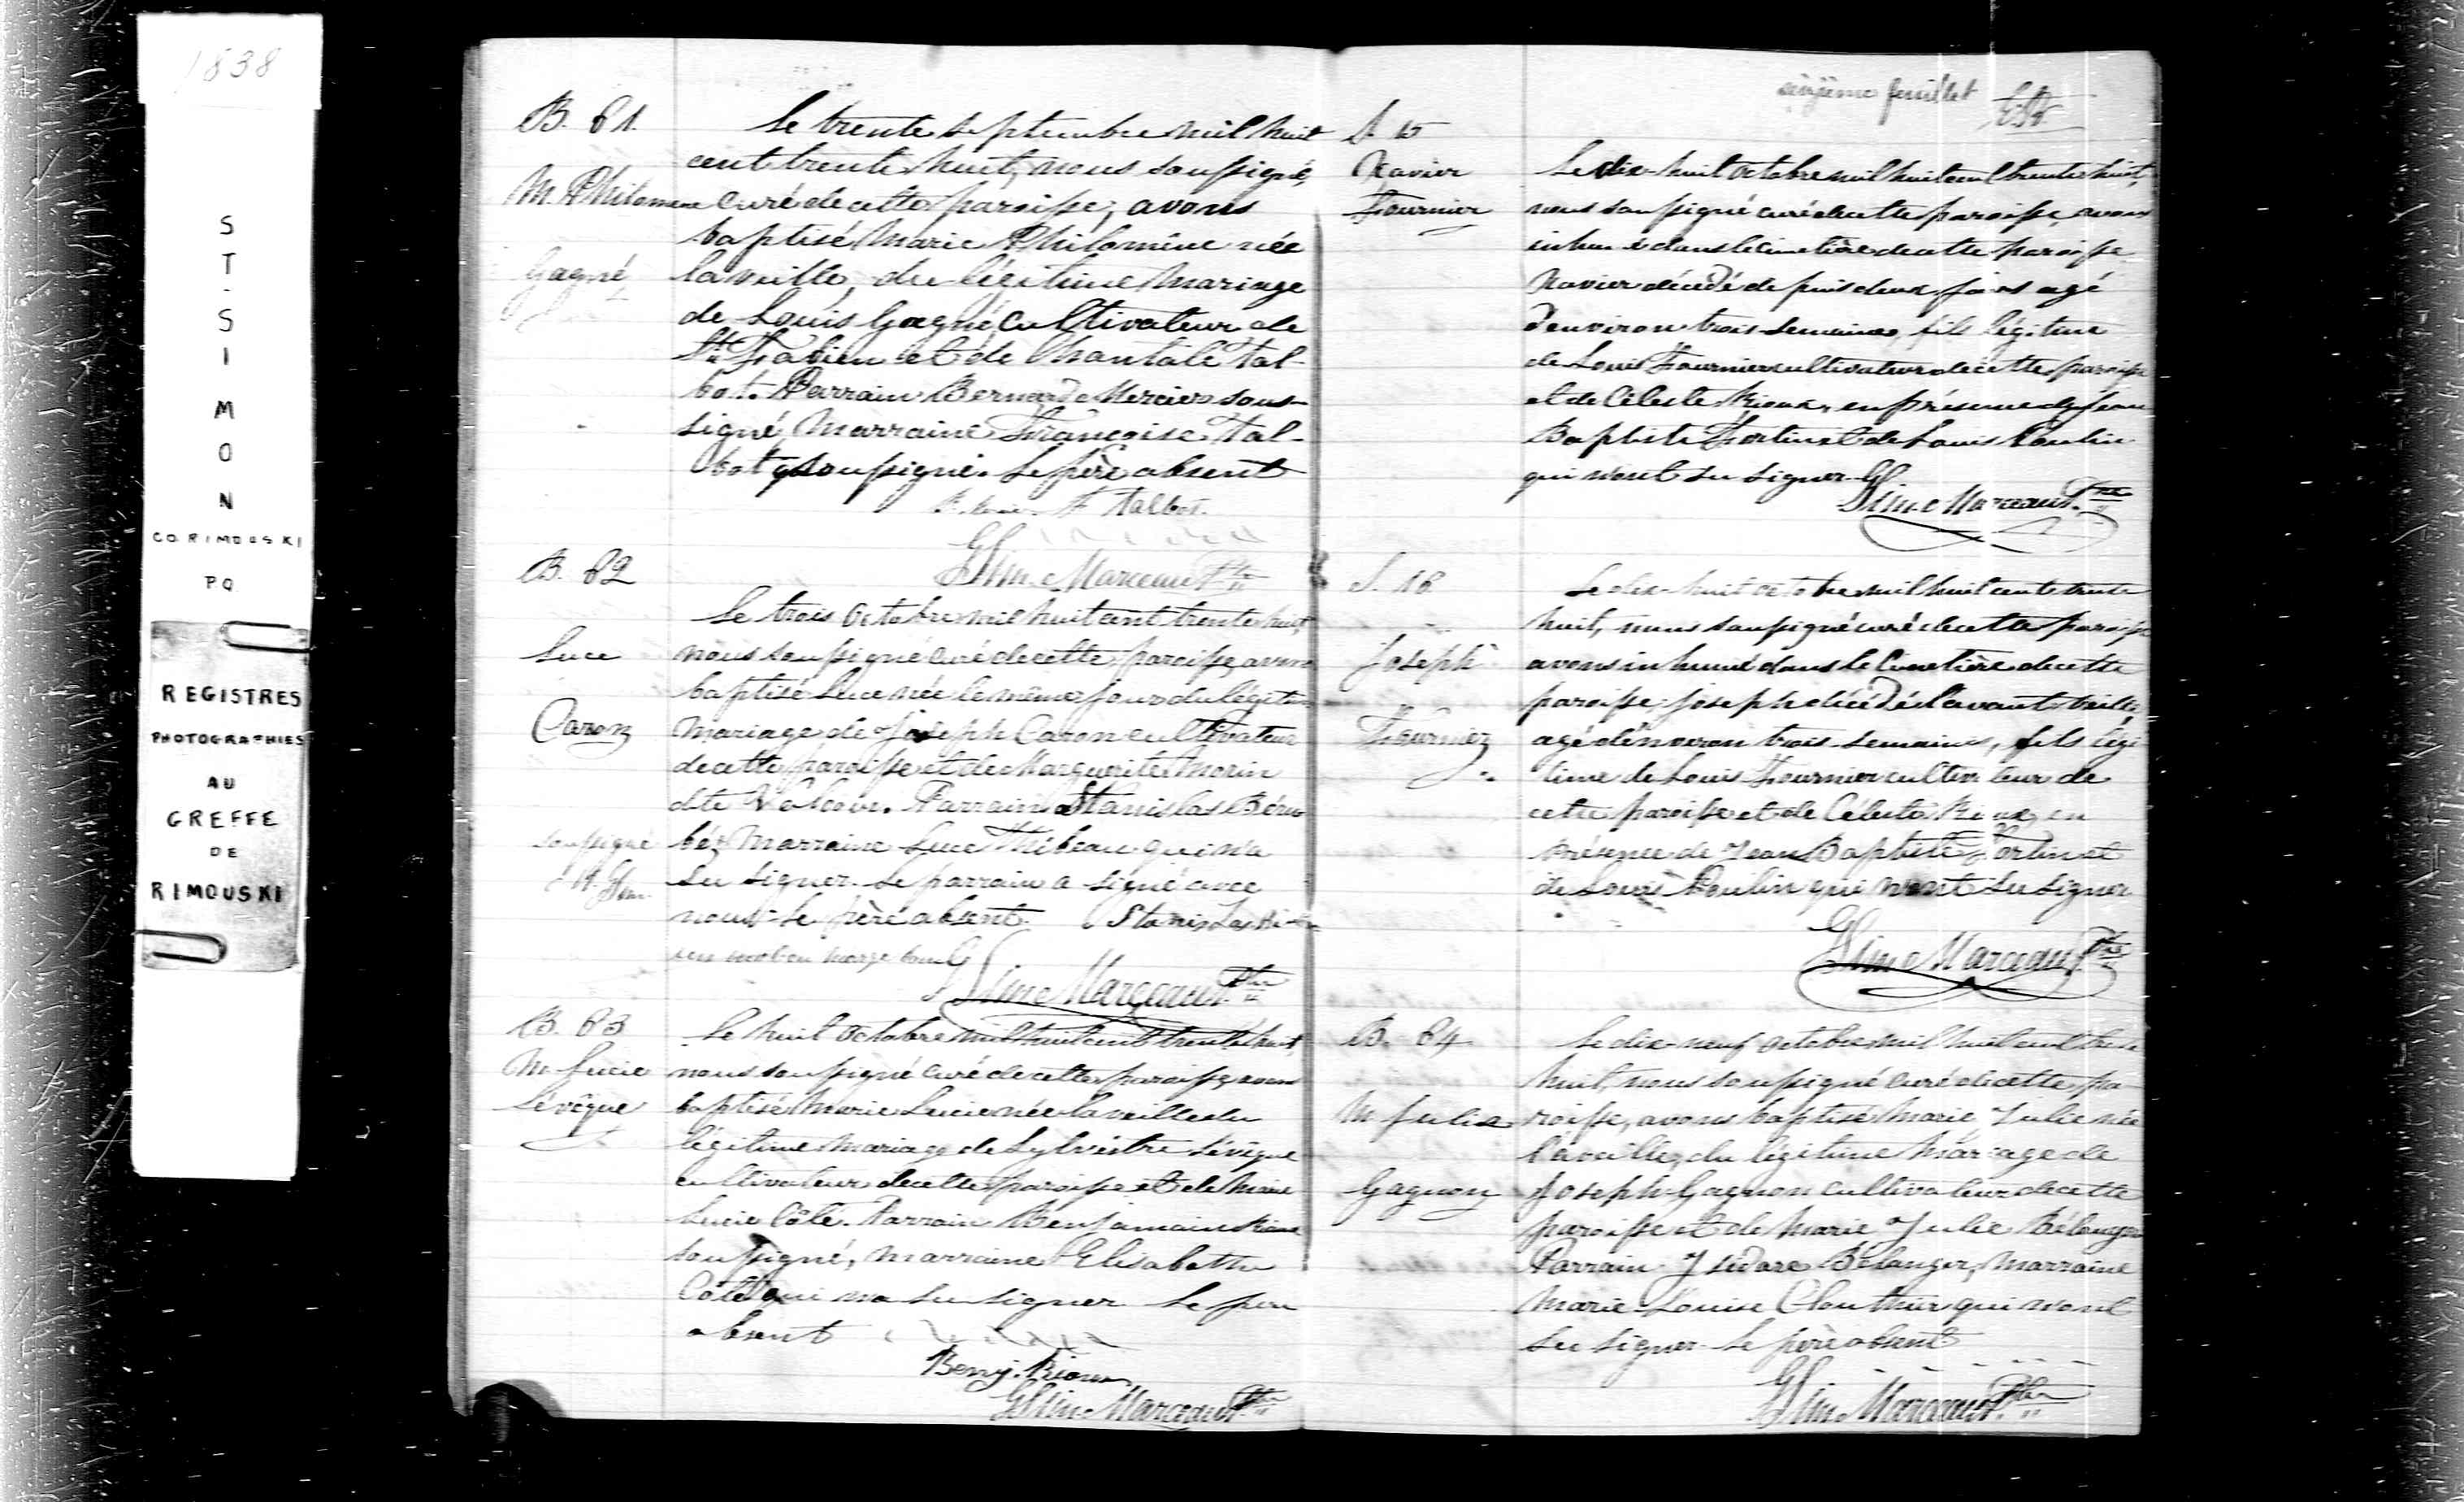 1838
ST-SIMON
CO. RIMOUSKI
PQ
REGISTRES
PHOTOGRAPHIES
AU
GREFFE
DE
RIMOUSKI
B. 61.
M. Philomène
Gagné
Le trente septembre mil huit
cent trente huit, nous soussigné,
curé de cette paroisse, avons
baptisé Marie Philomène née
la veille, du légitime mariage
de Louis Gagné cultivateur de
St. Fabien et de Chantale Tal-
bot. Parrain Bernard Mercier sous-
signé, Marraine Françoise Tal-
bot soussigné. Le père absent
F. Talbot
Marceau Ptre
B. 62
Luce
Caron
soussigné
Le trois octobre mil huit cent trente huit,
nous soussigné curé de cette paroisse, avons
baptisé Luce née le même jour du légitime
mariage de Joseph Caron cultivateur
de cette paroisse et de Marguerite Morin
dite Valcour. Parrain Stanislas Béru
bé, Marraine Luce Thibeau qui n'a
su signer. Le parrain a signé avec
nous. Le père absent. Stanislas
un mot en marge bon
Marceau Ptre
B. 63
M. Lucie
Lévêque
Le huit octobre mil huit cent trente huit,
nous soussigné curé de cette paroisse, avons
baptisé Marie Lucie née la veille du
légitime mariage de Sylvestre Lévêque
cultivateur de cette paroisse et de Marie
Lucie Côté. Parrain Benjamin Rioux
soussigné, marraine Elisabeth
Côté qui n'a su signer. Le père
absent
Benj. Rioux
Marceau Ptre
seizième feuillet
S. 15
Xavier
Fournier
Le dix-huit octobre mil huit cent trente huit,
nous soussigné curé de cette paroisse, avons
inhumé dans le cimetière de cette paroisse
Xavier décédé depuis deux jours agé
d'environ trois semaines, fils légitime
de Louis Fournier cultivateur de cette paroisse
et de Céleste Rioux, en présence de Jean
Baptiste Fortin et de Louis Poulin
qui n'ont su signer
Marceau Ptre
S. 16
Joseph
Fournier
Le dix-huit octobre mil huit cent trente
huit, nous soussigné curé de cette paroisse
avons inhumé dans le cimetière de cette
paroisse Joseph décédé l'avant veille,
agé d'environ trois semaines, fils légi
time de Louis Fournier cultivateur de
cette paroisse et de Céleste Rioux, en
présence de Jean Baptiste Fortin et
de Louis Poulin qui n'ont su signer
Marceau Ptre
B. 64
M. Julie
Gagnon
Le dix-neuf octobre mil huit cent trente
huit, nous soussigné curé de cette pa
roisse, avons baptisé Marie Julie née
la veille, du légitime mariage de
Joseph Gagnon cultivateur de cette
paroisse et de Marie Julie Bélanger
Parrain Isidore Bélanger, marraine
Marie-Louise Clouthier qui n'ont
su signer. Le père absent
Marceau Ptre